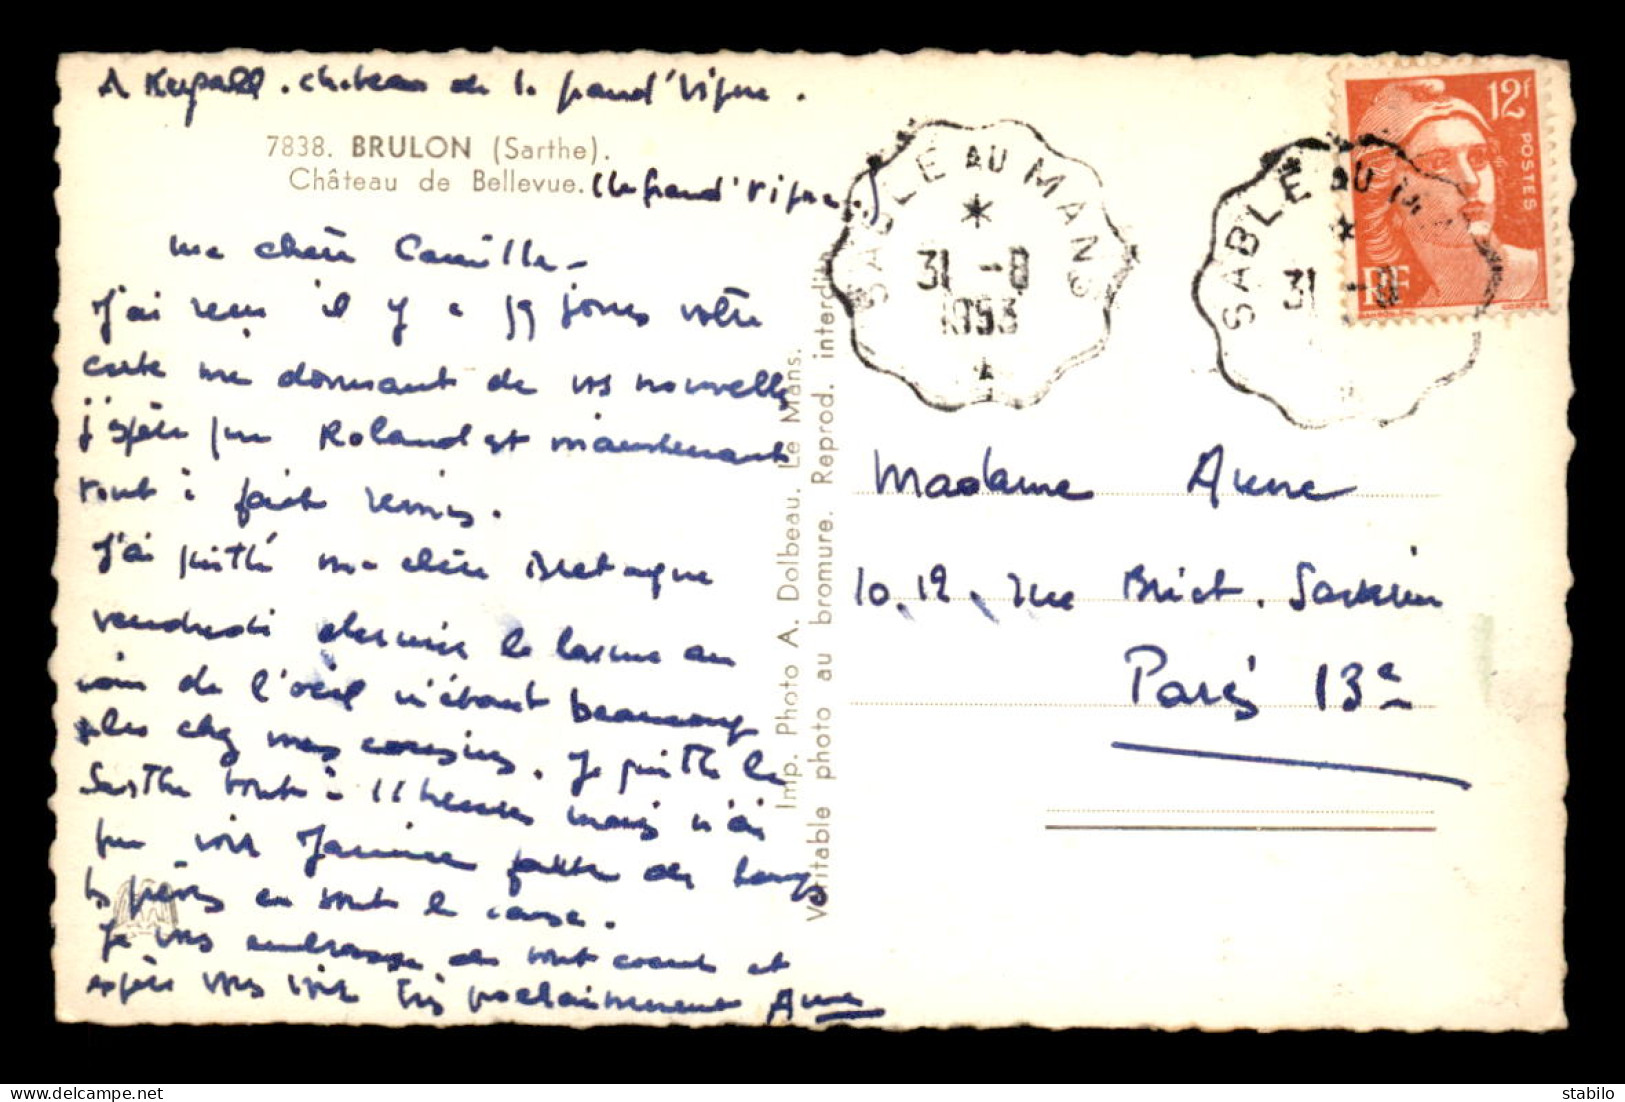 château de la grand'vigne.
7838. BRULON (Sarthe).
Château de Bellevue. (la grand'vigne.)
ma chère Camille -
J'ai reçu il y a jours votre
carte me donnant de vos nouvelles
j'espère que Roland est maintenant
tout à fait remis.
J'ai quitté ma chère Bretagne
vendredi dernier le
de l'œil n'étant beaucoup
plus chez mes cousins. Je quitte la
Sarthe tout à 11 heures mais n'ai
pu voir Janine faute de temps
les en sont la cause.
Je vous embrasse de tout coeur et
espère vous voir très prochainement Anne
Imp. Photo A. Dolbeau. Le Mans.
Véritable photo au bromure. Reprod. interdite
SABLE AU MANS
31 -8
1953
SABLE AU MANS
31 -8
12f
POSTES
RF
Madame Anne
10.12. rue Brict. Savarin
Paris 13e
stabilo